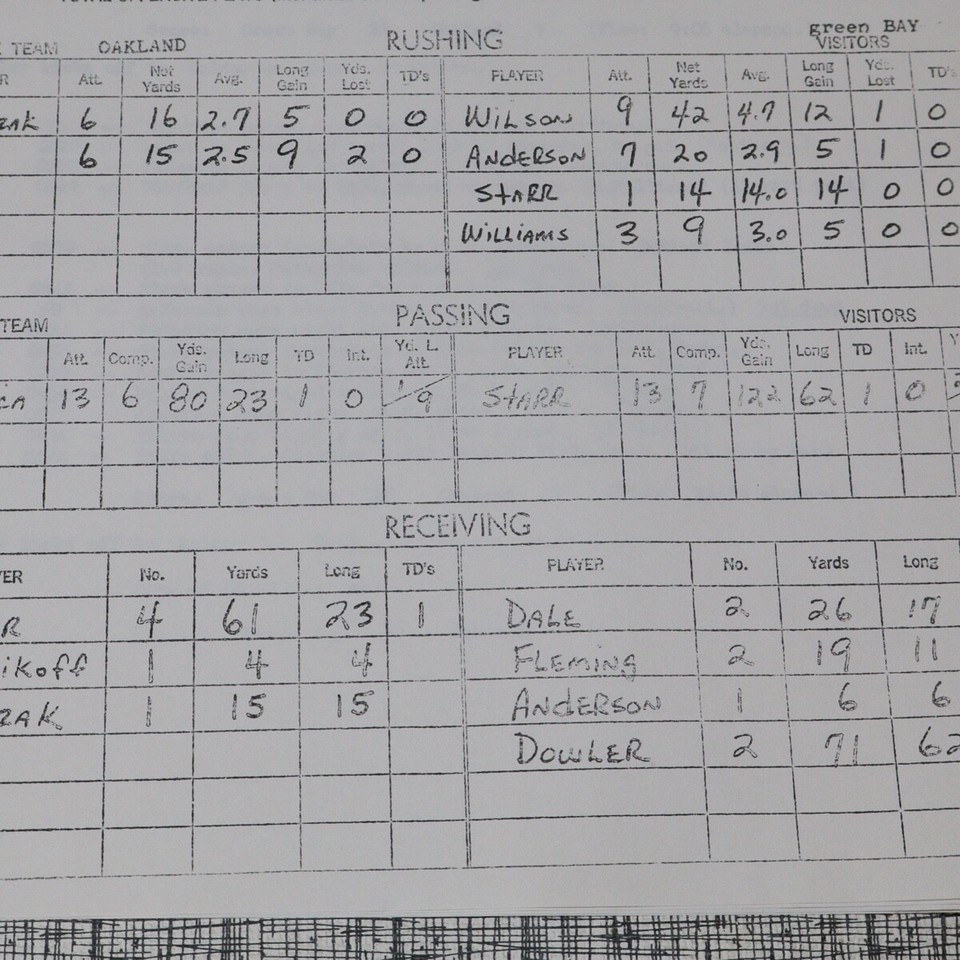 TEAM OAKLAND RUSHING green BAY
VISITORS
R Att. Net Yards Avg. Long Gain Yds. Lost TD's PLAYER Att. Net Yards Avg. Long Gain Yds. Lost TD's
ZAK 6 16 2.7 5 0 0 WILSON 9 42 4.7 12 1 0
6 15 2.5 9 2 0 ANDERSON 7 20 2.9 5 1 0
STARR 1 14 14.0 14 0 0
WILLIAMS 3 9 3.0 5 0 0
TEAM PASSING VISITORS
Att. Comp. Yds. Gain Long TD Int. Yd. L. Att. PLAYER Att. Comp. Yds. Gain Long TD Int. Y
CA 13 6 80 23 1 0 1/9 STARR 13 7 122 62 1 0
RECEIVING
YER No. Yards Long TD's PLAYER No. Yards Long
R 4 61 23 1 DALE 2 26 17
iKoff 1 4 4 FLEMING 2 19 11
ZAK 1 15 15 ANDERSON 1 6 6
DOWLER 2 71 62